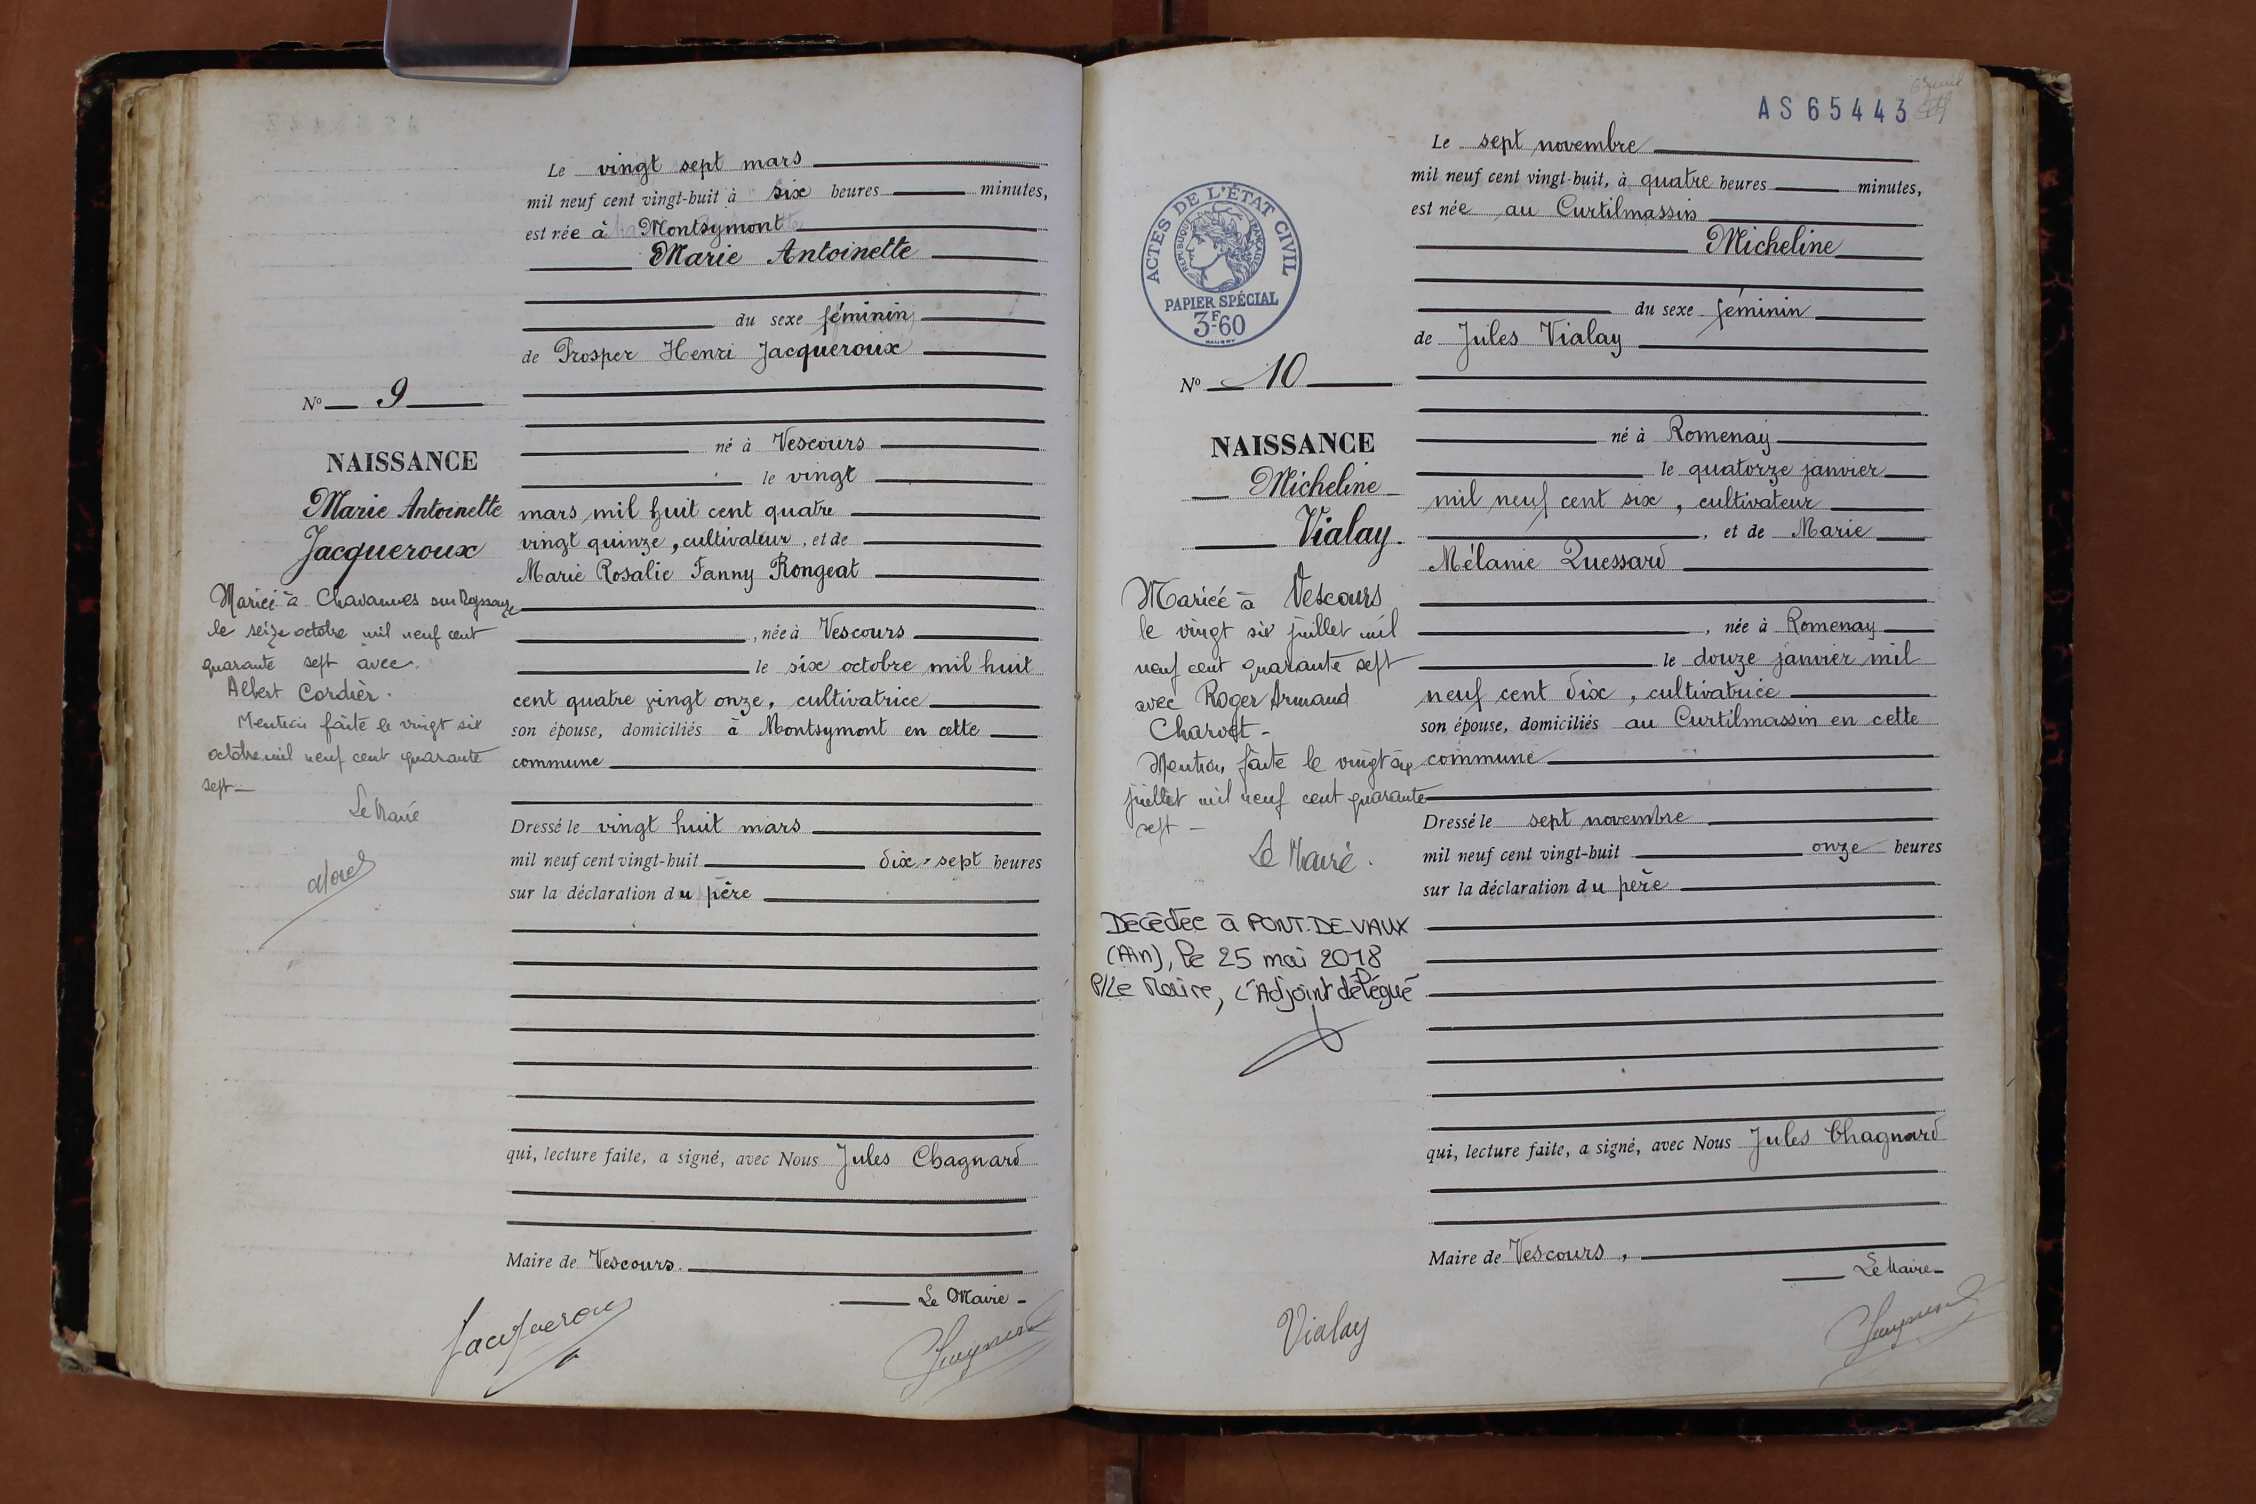 Le vingt sept mars
mil neuf cent vingt-huit à six heures minutes,
est née à Montsymont
Marie Antoinette
du sexe féminin
de Prosper Henri Jacqueroux
né à Vescours
le vingt
mars mil huit cent quatre
vingt quinze, cultivateur, et de
Marie Rosalie Fanny Rongeat
, née à Vescours
le six octobre mil huit
cent quatre vingt onze, cultivatrice
son épouse, domiciliés à Montsymont en cette
commune
Dressé le vingt huit mars
mil neuf cent vingt-huit dix-sept heures
sur la déclaration du père
qui, lecture faite, a signé, avec Nous Jules Chagnard
Maire de Vescours.
Le Maire
Jacqueroux
Nº 9
NAISSANCE
Marie Antoinette
Jacqueroux
Mariée à Chavannes sur Reyssouze
le seize octobre mil neuf cent
quarante sept avec
Albert Cordier.
Mention faite le vingt six
octobre mil neuf cent quarante
sept
Le Maire
AS65443
ACTES DE L'ÉTAT CIVIL
RÉPUBLIQUE FRANÇAISE
PAPIER SPÉCIAL
3F60
Nº 10
NAISSANCE
Micheline
Vialay.
Mariée à Vescours
le vingt six juillet mil
neuf cent quarante sept
avec Roger Armand
Charvet
Mention faite le vingt six
juillet mil neuf cent quarante
sept
Le Maire.
Décédée à PONT-DE-VAUX
(Ain), le 25 mai 2018
P/Le Maire, L'Adjoint délégué
Le sept novembre
mil neuf cent vingt-huit, à quatre heures minutes,
est née au Curtilmassin
Micheline
du sexe féminin
de Jules Vialay
né à Romenay
le quatorze janvier
mil neuf cent six, cultivateur
, et de Marie
Mélanie Quessard
, née à Romenay
le douze janvier mil
neuf cent dix, cultivatrice
son épouse, domiciliés au Curtilmassin en cette
commune
Dressé le sept novembre
mil neuf cent vingt-huit onze heures
sur la déclaration du père
qui, lecture faite, a signé, avec Nous Jules Chagnard
Maire de Vescours,
Le Maire
Vialay